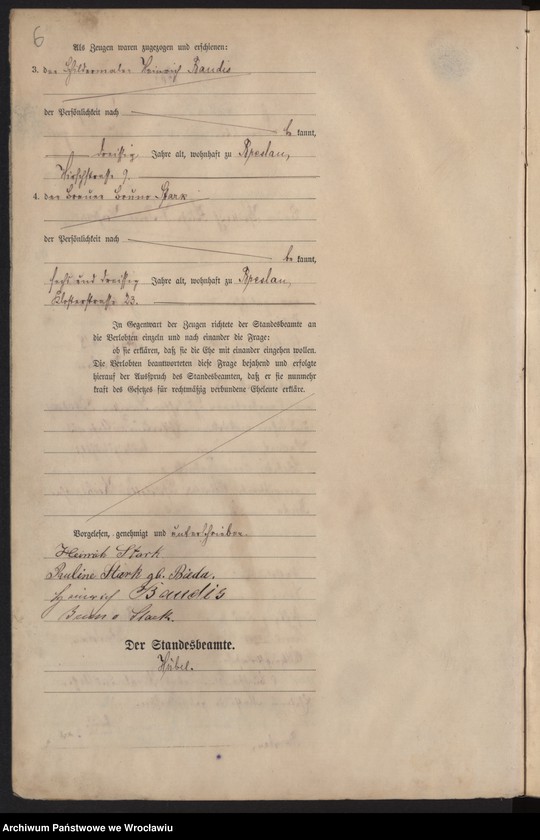 6
Als Zeugen waren zugezogen und erschienen:
3. der Schildermaler Heinrich Baudis
der Persönlichkeit nach
be kannt,
dreißig Jahre alt, wohnhaft zu Breslau,
Hirschstraße 9.
4. der Brauer Bruno Stark
der Persönlichkeit nach
be kannt,
sechs und dreißig Jahre alt, wohnhaft zu Breslau,
Klosterstraße 23.
In Gegenwart der Zeugen richtete der Standesbeamte an
die Verlobten einzeln und nach einander die Frage:
ob sie erklären, daß sie die Ehe mit einander eingehen wollen.
Die Verlobten beantworteten diese Frage bejahend und erfolgte
hierauf der Ausspruch des Standesbeamten, daß er sie nunmehr
kraft des Gesetzes für rechtmäßig verbundene Eheleute erkläre.
Vorgelesen, genehmigt und unterschrieben
Heinrich Stark
Pauline Stark gb.
Heinrich Baudis
Bruno Stark.
Der Standesbeamte.
Hübel.
Archiwum Państwowe we Wrocławiu